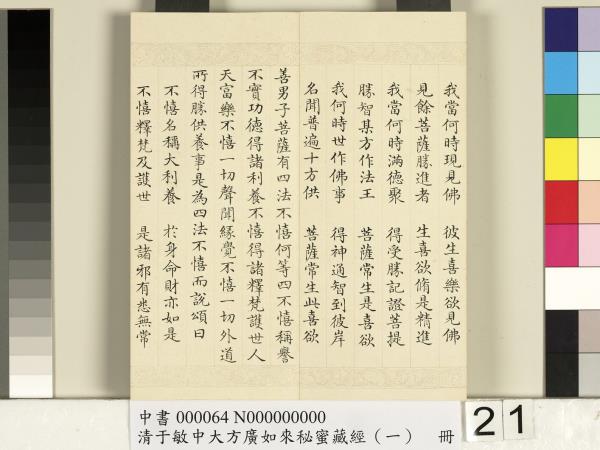 我當何時現見佛　彼生喜樂欲見佛
見餘菩薩勝進者　生喜欲脩是精進
我當何時滿德聚　得受勝記證菩提
勝智集方作法王　菩薩常生是喜欲
我何時世作佛事　得神通智到彼岸
名聞普遍十方供　菩薩常生此喜欲
善男子菩薩有四法不憙何等四不憙稱譽
不實功德得諸利養不憙得諸釋梵護世人
天富樂不憙一切聲聞緣覺不憙一切外道
所得勝供養事是為四法不憙而說頌曰
不憙名稱大利養　於身命財亦如是
不憙釋梵及護世　是諸邪有悉無常
中書 000064 N000000000
清于敏中大方廣如來秘蜜藏經（一）　冊
21